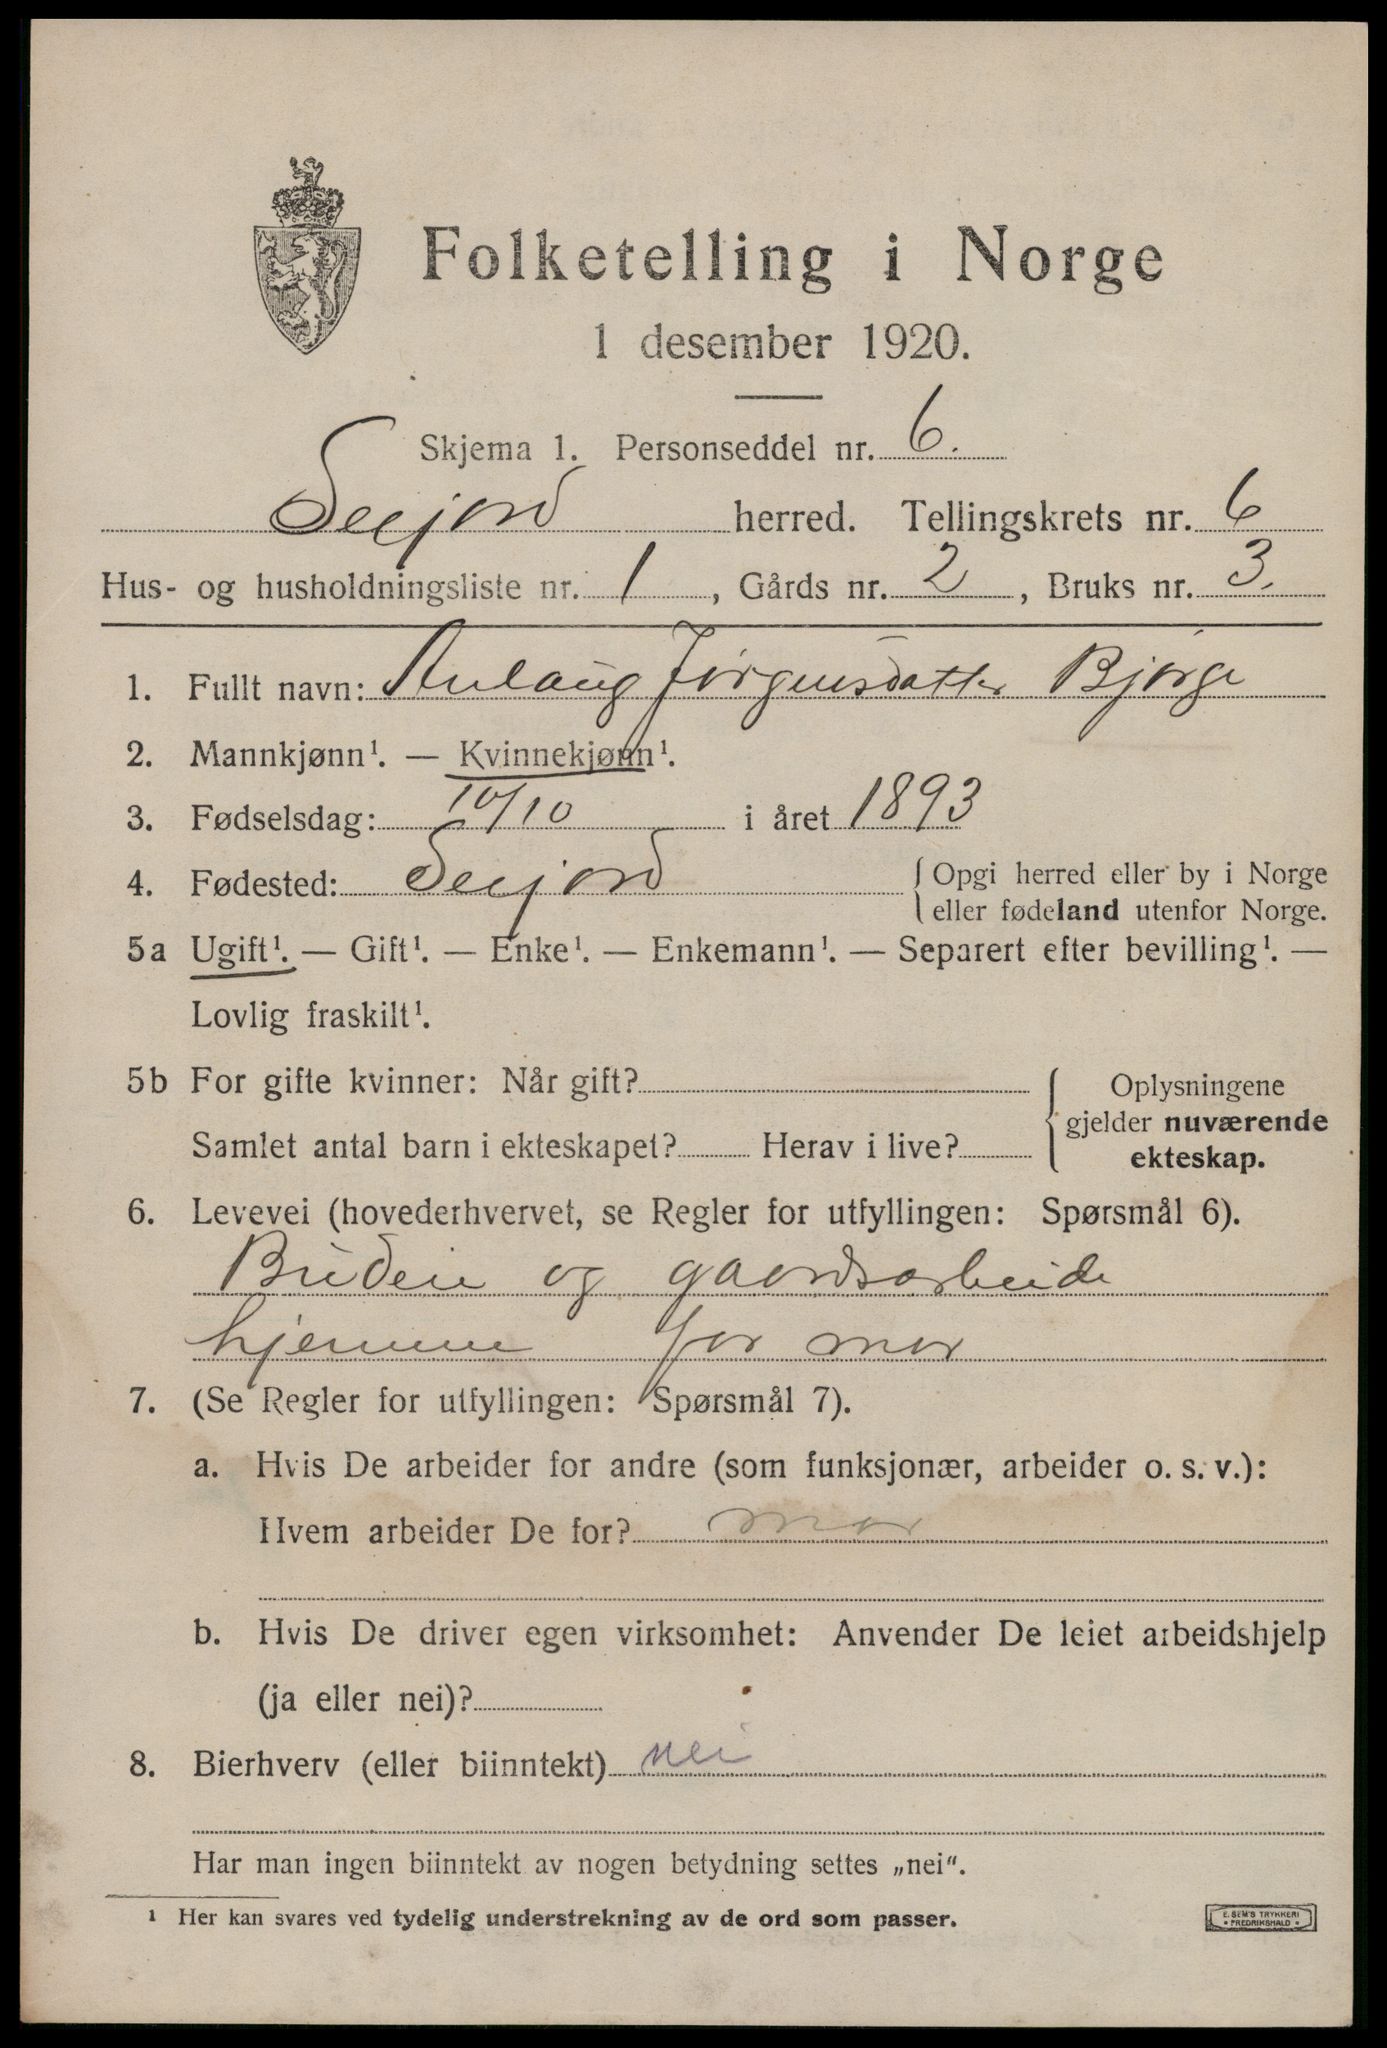 Folketelling i Norge
1 desember 1920.
Skjema 1. Personseddel nr. 6.
Seljord herred. Tellingskrets nr. 6
Hus- og husholdningsliste nr. 1, Gårds nr. 2, Bruks nr. 3.
1. Fullt navn: Aslaug Jørgensdatter Bjørge
2. Mannkjønn¹. — Kvinnekjønn¹.
3. Fødselsdag: 10/10 i året 1893
4. Fødested: Seljord { Opgi herred eller by i Norge
eller fødeland utenfor Norge.
5a Ugift¹. — Gift¹. — Enke¹. — Enkemann¹. — Separert efter bevilling¹. —
Lovlig fraskilt¹.
5b For gifte kvinner: Når gift? { Oplysningene
gjelder nuværende
Samlet antal barn i ekteskapet? Herav i live?
ekteskap.
6. Levevei (hovederhvervet, se Regler for utfyllingen: Spørsmål 6).
Budeie og gaardsarbeide
hjemme for mor
7. (Se Regler for utfyllingen: Spørsmål 7).
a. Hvis De arbeider for andre (som funksjonær, arbeider o. s. v.):
Hvem arbeider De for? mor
b. Hvis De driver egen virksomhet: Anvender De leiet arbeidshjelp
(ja eller nei)?
8. Bierhverv (eller biinntekt) nei
Har man ingen biinntekt av nogen betydning settes „nei“.
¹ Her kan svares ved tydelig understrekning av de ord som passer.
E. SEM'S TRYKKERI
• FREDRIKSHALD •